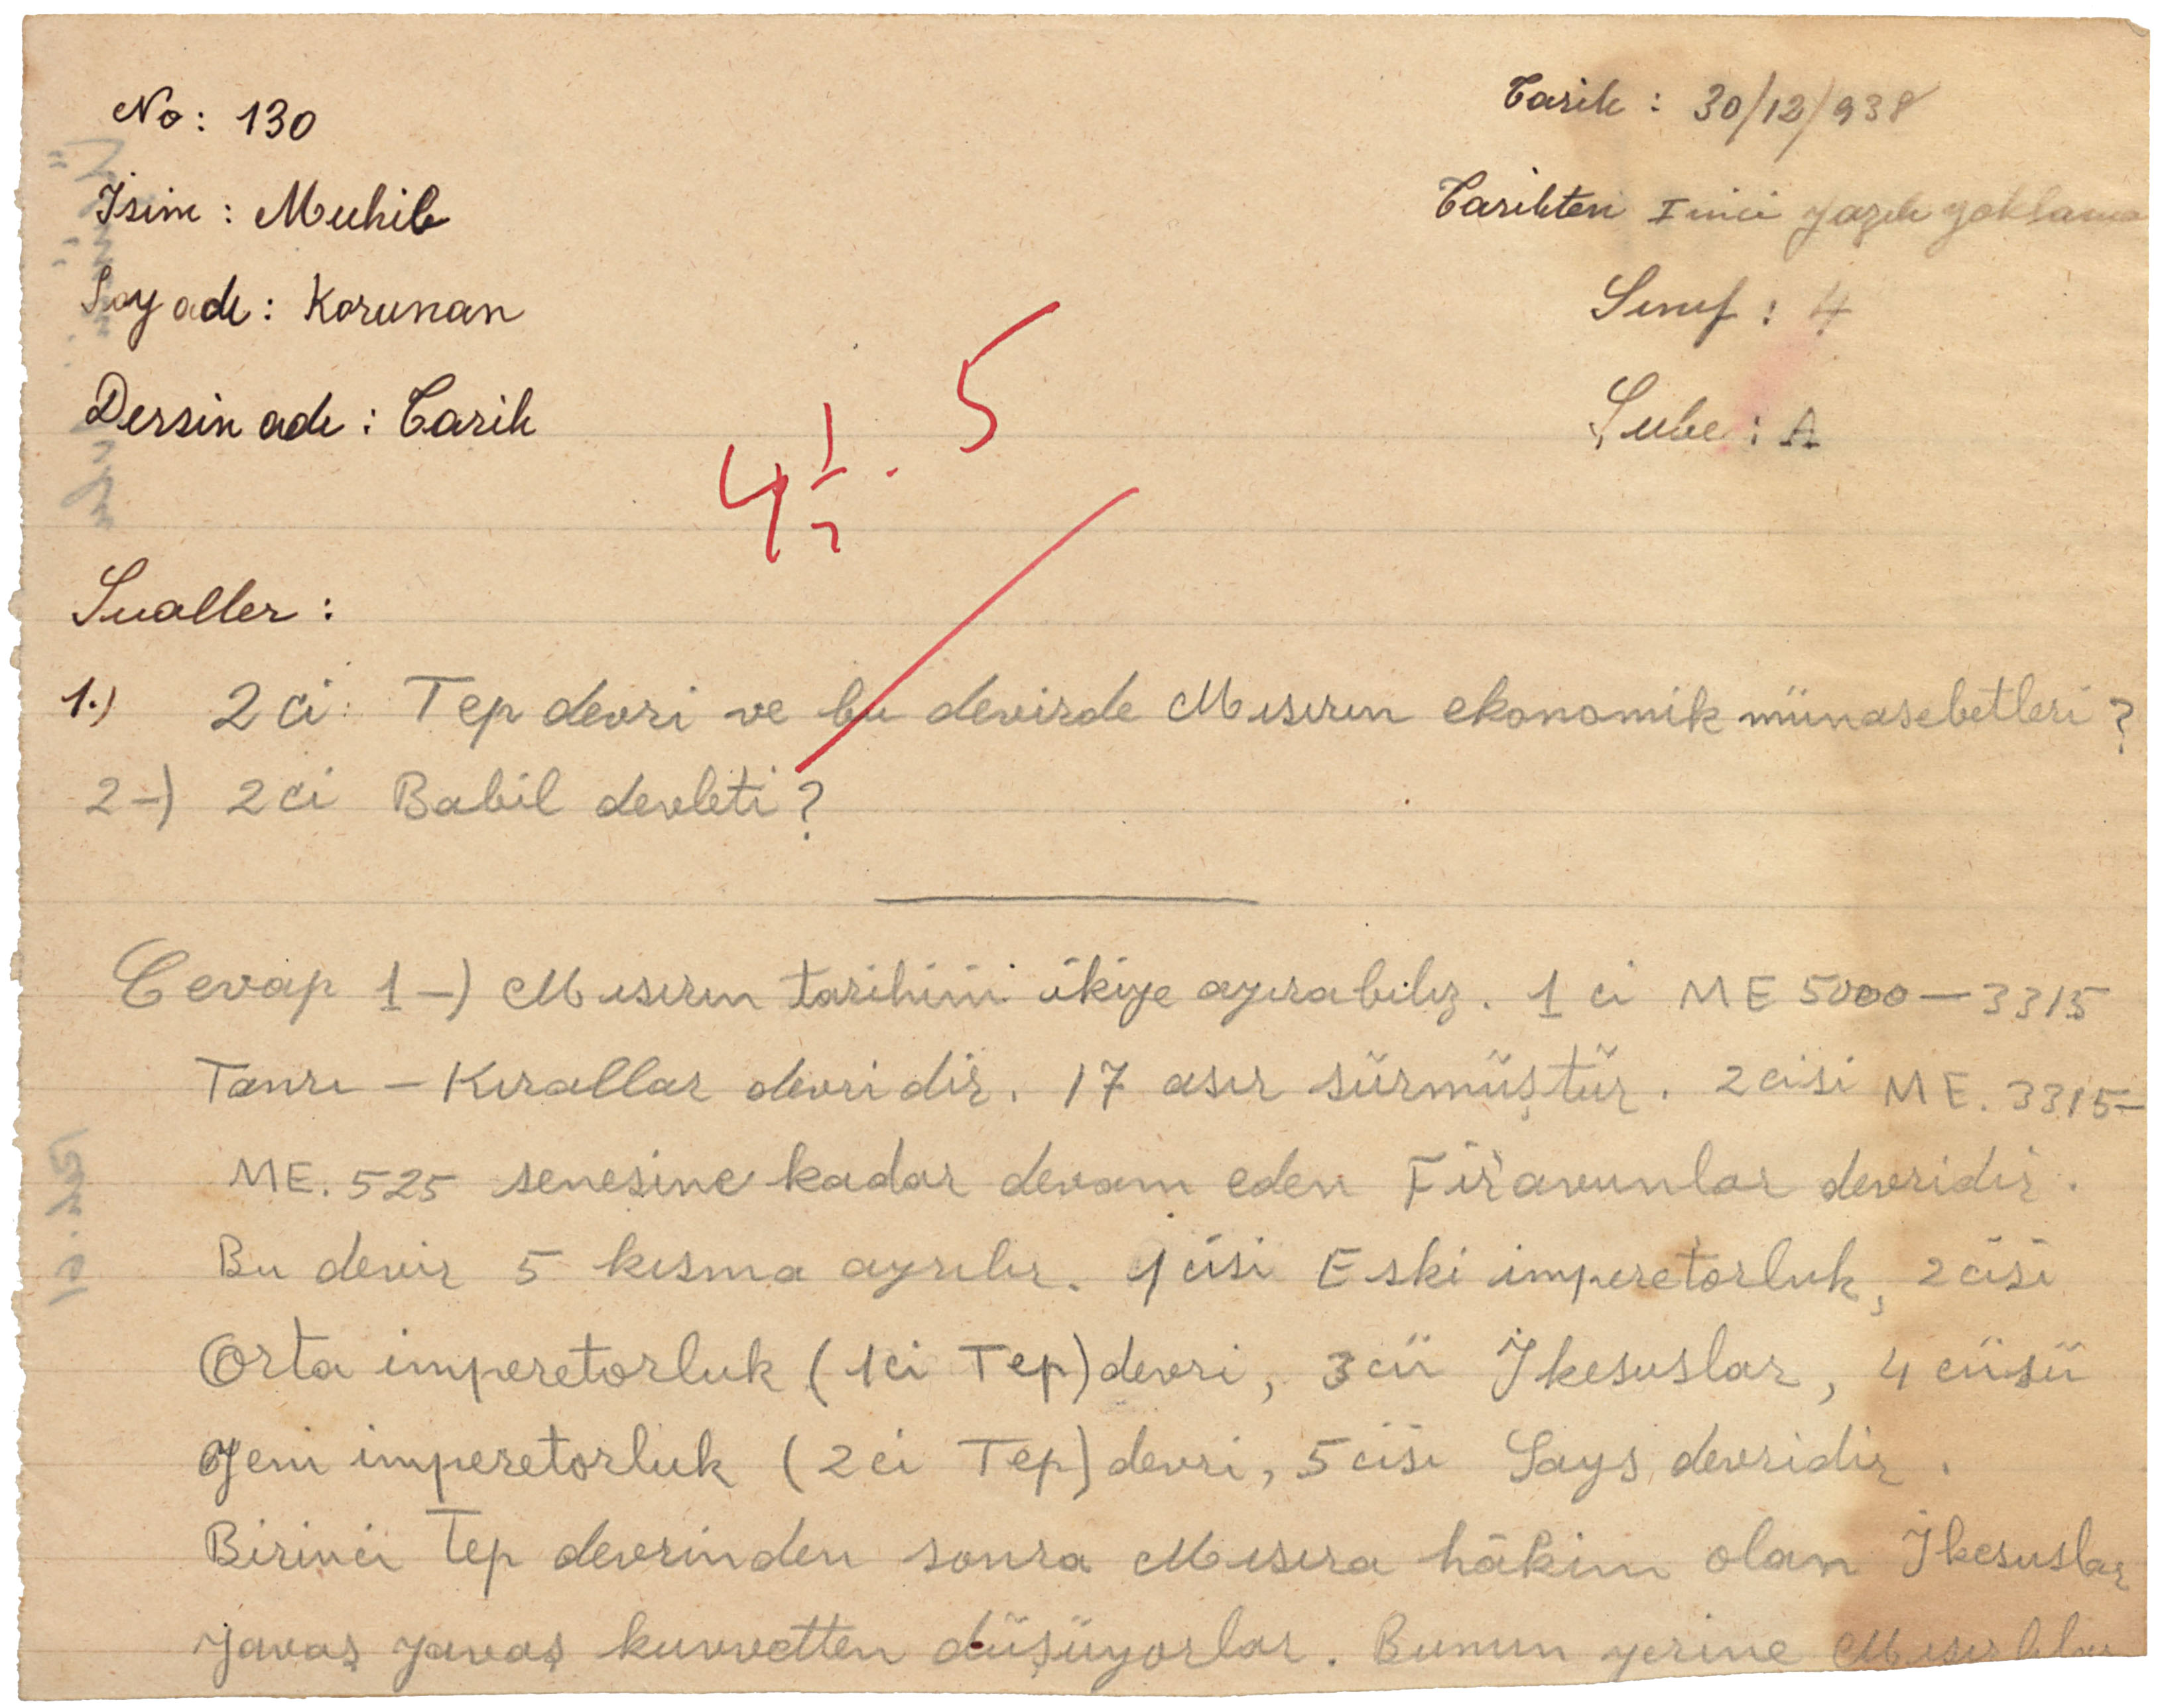 No: 130
Tarih: 30/12/938
İsim: Muhib
Tarihten I inci yazılı yoklama
Soy adı: Korunan
Sınıf: 4
Dersin adı: Tarih
Şube: A
4 1/2 . 5
Sualler:
1.) 2 ci Tep devri ve bu devirde Mısırın ekonomik münasebetleri?
2-) 2 ci Babil devleti?
Cevap 1-) Mısırın tarihini ikiye ayırabilız. 1 ci ME 5000-3315
Tanrı - Kırallar devridir. 17 asır sürmüştür. 2 cisi ME. 3315-
ME. 525 senesine kadar devam eden Fir'avunlar devridir.
Bu devir 5 kısma ayrılır. 1 cisi Eski imperetorluk, 2 cisi
Orta imperetorluk (1 ci Tep) devri, 3 cü İkesuslar, 4 cüsü
Yeni imperetorluk (2 ci Tep) devri, 5 cisi Says devridir.
Birinci Tep devrinden sonra Mısıra hâkim olan İkesuslar
yavaş yavaş kuvvetten düşüyorlar. Bunun yerine Mısırlılar